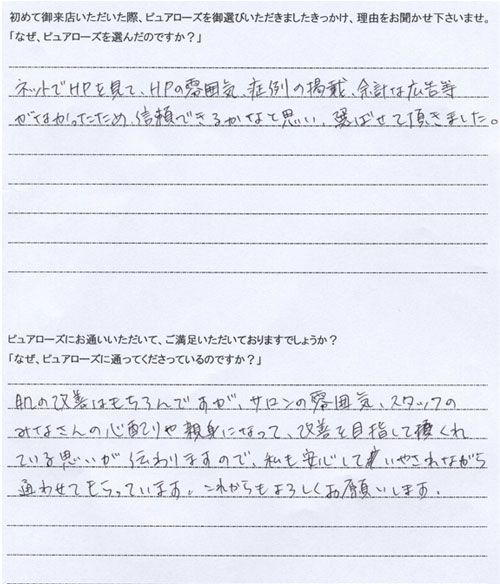 初めて御来店いただいた際、ピュアローズを御選びいただきましたきっかけ、理由をお聞かせ下さいませ。
「なぜ、ピュアローズを選んだのですか？」
ネットでHPを見て、HPの雰囲気、症例の掲載、余計な広告等
がなかったため、信頼できるかなと思い、選ばせて頂きました。
ピュアローズにお通いいただいて、ご満足いただいておりますでしょうか？
「なぜ、ピュアローズに通ってくださっているのですか？」
肌の改善はもちろんですが、サロンの雰囲気、スタッフの
みなさんの心配りや親身になって、改善を目指してくれ
ている思いが伝わりますので、私も安心していやされながら
通わせてもらっています。これからもよろしくお願いします。